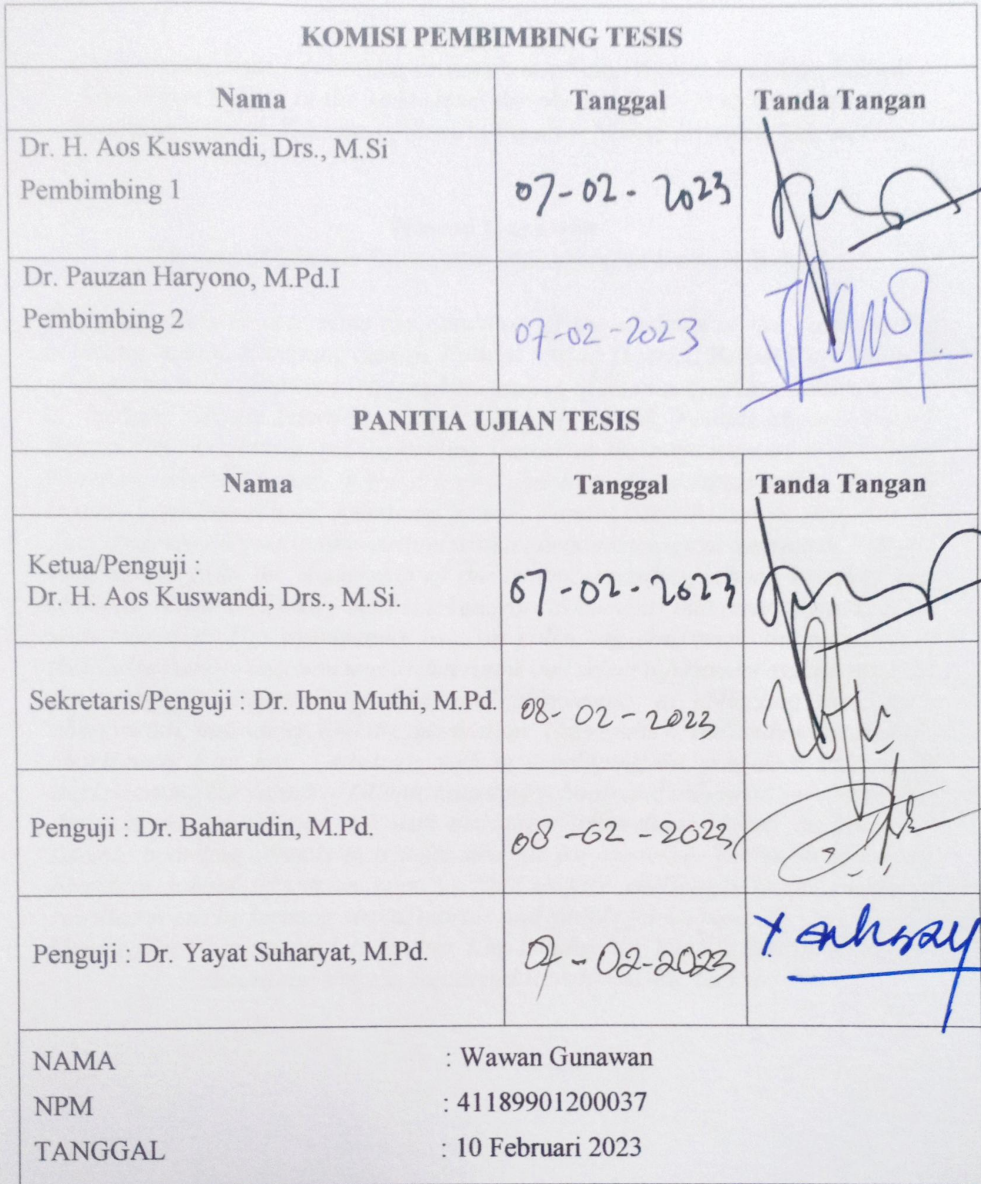 KOMISI PEMBIMBING TESIS
Nama Tanggal Tanda Tangan
Dr. H. Aos Kuswandi, Drs., M.Si
Pembimbing 1
07-02-2023
Dr. Pauzan Haryono, M.Pd.I
Pembimbing 2
07-02-2023
PANITIA UJIAN TESIS
Nama Tanggal Tanda Tangan
Ketua/Penguji :
Dr. H. Aos Kuswandi, Drs., M.Si.
07-02-2023
Sekretaris/Penguji : Dr. Ibnu Muthi, M.Pd. 08-02-2023
Penguji : Dr. Baharudin, M.Pd. 08-02-2023
Penguji : Dr. Yayat Suharyat, M.Pd. 07-02-2023
NAMA : Wawan Gunawan
NPM : 41189901200037
TANGGAL : 10 Februari 2023